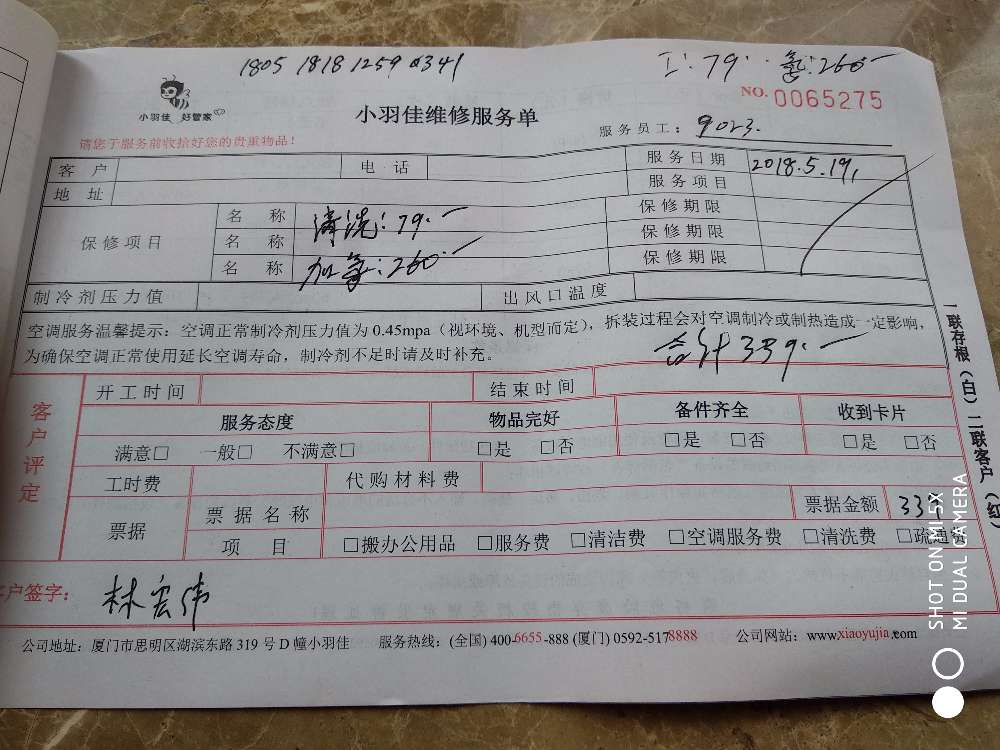 1805 1818 1259 0341
工:79.- 氟:260.-
小羽佳 好管家
NO. 0065275
小羽佳维修服务单
服务员工: 9023.
请您于服务前收拾好您的贵重物品!
客户 电话 服务日期 2018.5.19,
地址 服务项目
保修项目 名称 清洗:79.- 保修期限
名称 保修期限
名称 加氟:260.- 保修期限
制冷剂压力值 出风口温度
空调服务温馨提示:空调正常制冷剂压力值为0.45mpa(视环境、机型而定),拆装过程会对空调制冷或制热造成一定影响,
为确保空调正常使用延长空调寿命,制冷剂不足时请及时补充。 合计339.-
客户评定
开工时间 结束时间
服务态度 物品完好 备件齐全 收到卡片
满意□ 一般□ 不满意□ □是 □否 □是 □否 □是 □否
工时费 代购材料费
票据 票据名称 票据金额 339
项目 □搬办公用品 □服务费 □清洁费 □空调服务费 □清洗费 □疏通费
客户签字: 林宏伟
公司地址:厦门市思明区湖滨东路319号D幢小羽佳 服务热线:(全国)400-6655-888(厦门)0592-5178888 公司网站:www.xiaoyujia.com
一联存根(白)二联客户(红)
SHOT ON MI 5X
MI DUAL CAMERA